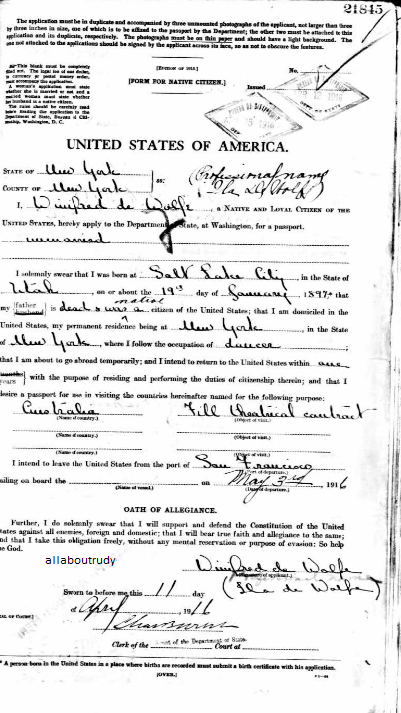 21845
The application must be in duplicate and accompanied by three unmounted photographs of the applicant, not larger than three
by three inches in size, one of which is to be affixed to the passport by the Department; the other two must be attached to this
application and its duplicate, respectively. The photographs must be on thin paper and should have a light background. The
one not attached to the applications should be signed by the applicant across its face, so as not to obscure the features.
[EDITION OF 1915.]
[FORM FOR NATIVE CITIZEN.]
This blank must be completely
filled out. The legal fee of one dollar,
in currency or postal money order,
must accompany the application.
A woman's application must state
whether she is married or not and a
married woman must state whether
her husband is a native citizen.
The rules should be carefully read
before mailing the application to the
Department of State, Bureau of Citi-
zenship, Washington, D. C.
No.
Issued
UNITED STATES OF AMERICA.
STATE OF New York
COUNTY OF New York ss:
(Professional name
Ila De Wolfe)
I, Winifred de Wolfe, a NATIVE AND LOYAL CITIZEN OF THE
UNITED STATES, hereby apply to the Department of State, at Washington, for a passport.
unmarried
I solemnly swear that I was born at Salt Lake City, in the State of
Utah, on or about the 19th day of January, 1897, that
my {father husband} is dead & was a native citizen of the United States; that I am domiciled in the
United States, my permanent residence being at New York, in the State
of New York, where I follow the occupation of dancer
that I am about to go abroad temporarily; and I intend to return to the United States within one
months years} with the purpose of residing and performing the duties of citizenship therein; and that I
desire a passport for use in visiting the countries hereinafter named for the following purpose:
Australia Fill theatrical contract
(Name of country.) (Object of visit.)
(Name of country.) (Object of visit.)
(Name of country.) (Object of visit.)
I intend to leave the United States from the port of San Francisco
(Port of departure.)
sailing on board the on May 3rd, 1916
(Name of vessel.) (Date of departure.)
OATH OF ALLEGIANCE.
Further, I do solemnly swear that I will support and defend the Constitution of the United
States against all enemies, foreign and domestic; that I will bear true faith and allegiance to the same;
and that I take this obligation freely, without any mental reservation or purpose of evasion: So help
me God.
allaboutrudy
Winifred de Wolfe
(Signature of applicant.)
(Ila de Wolfe)
Sworn to before me this 11 day
of April, 1916
[SEAL OF COURT.]
Clerk of the Court at
Agent of the Department of State.
* A person born in the United States in a place where births are recorded must submit a birth certificate with his application.
[OVER.]